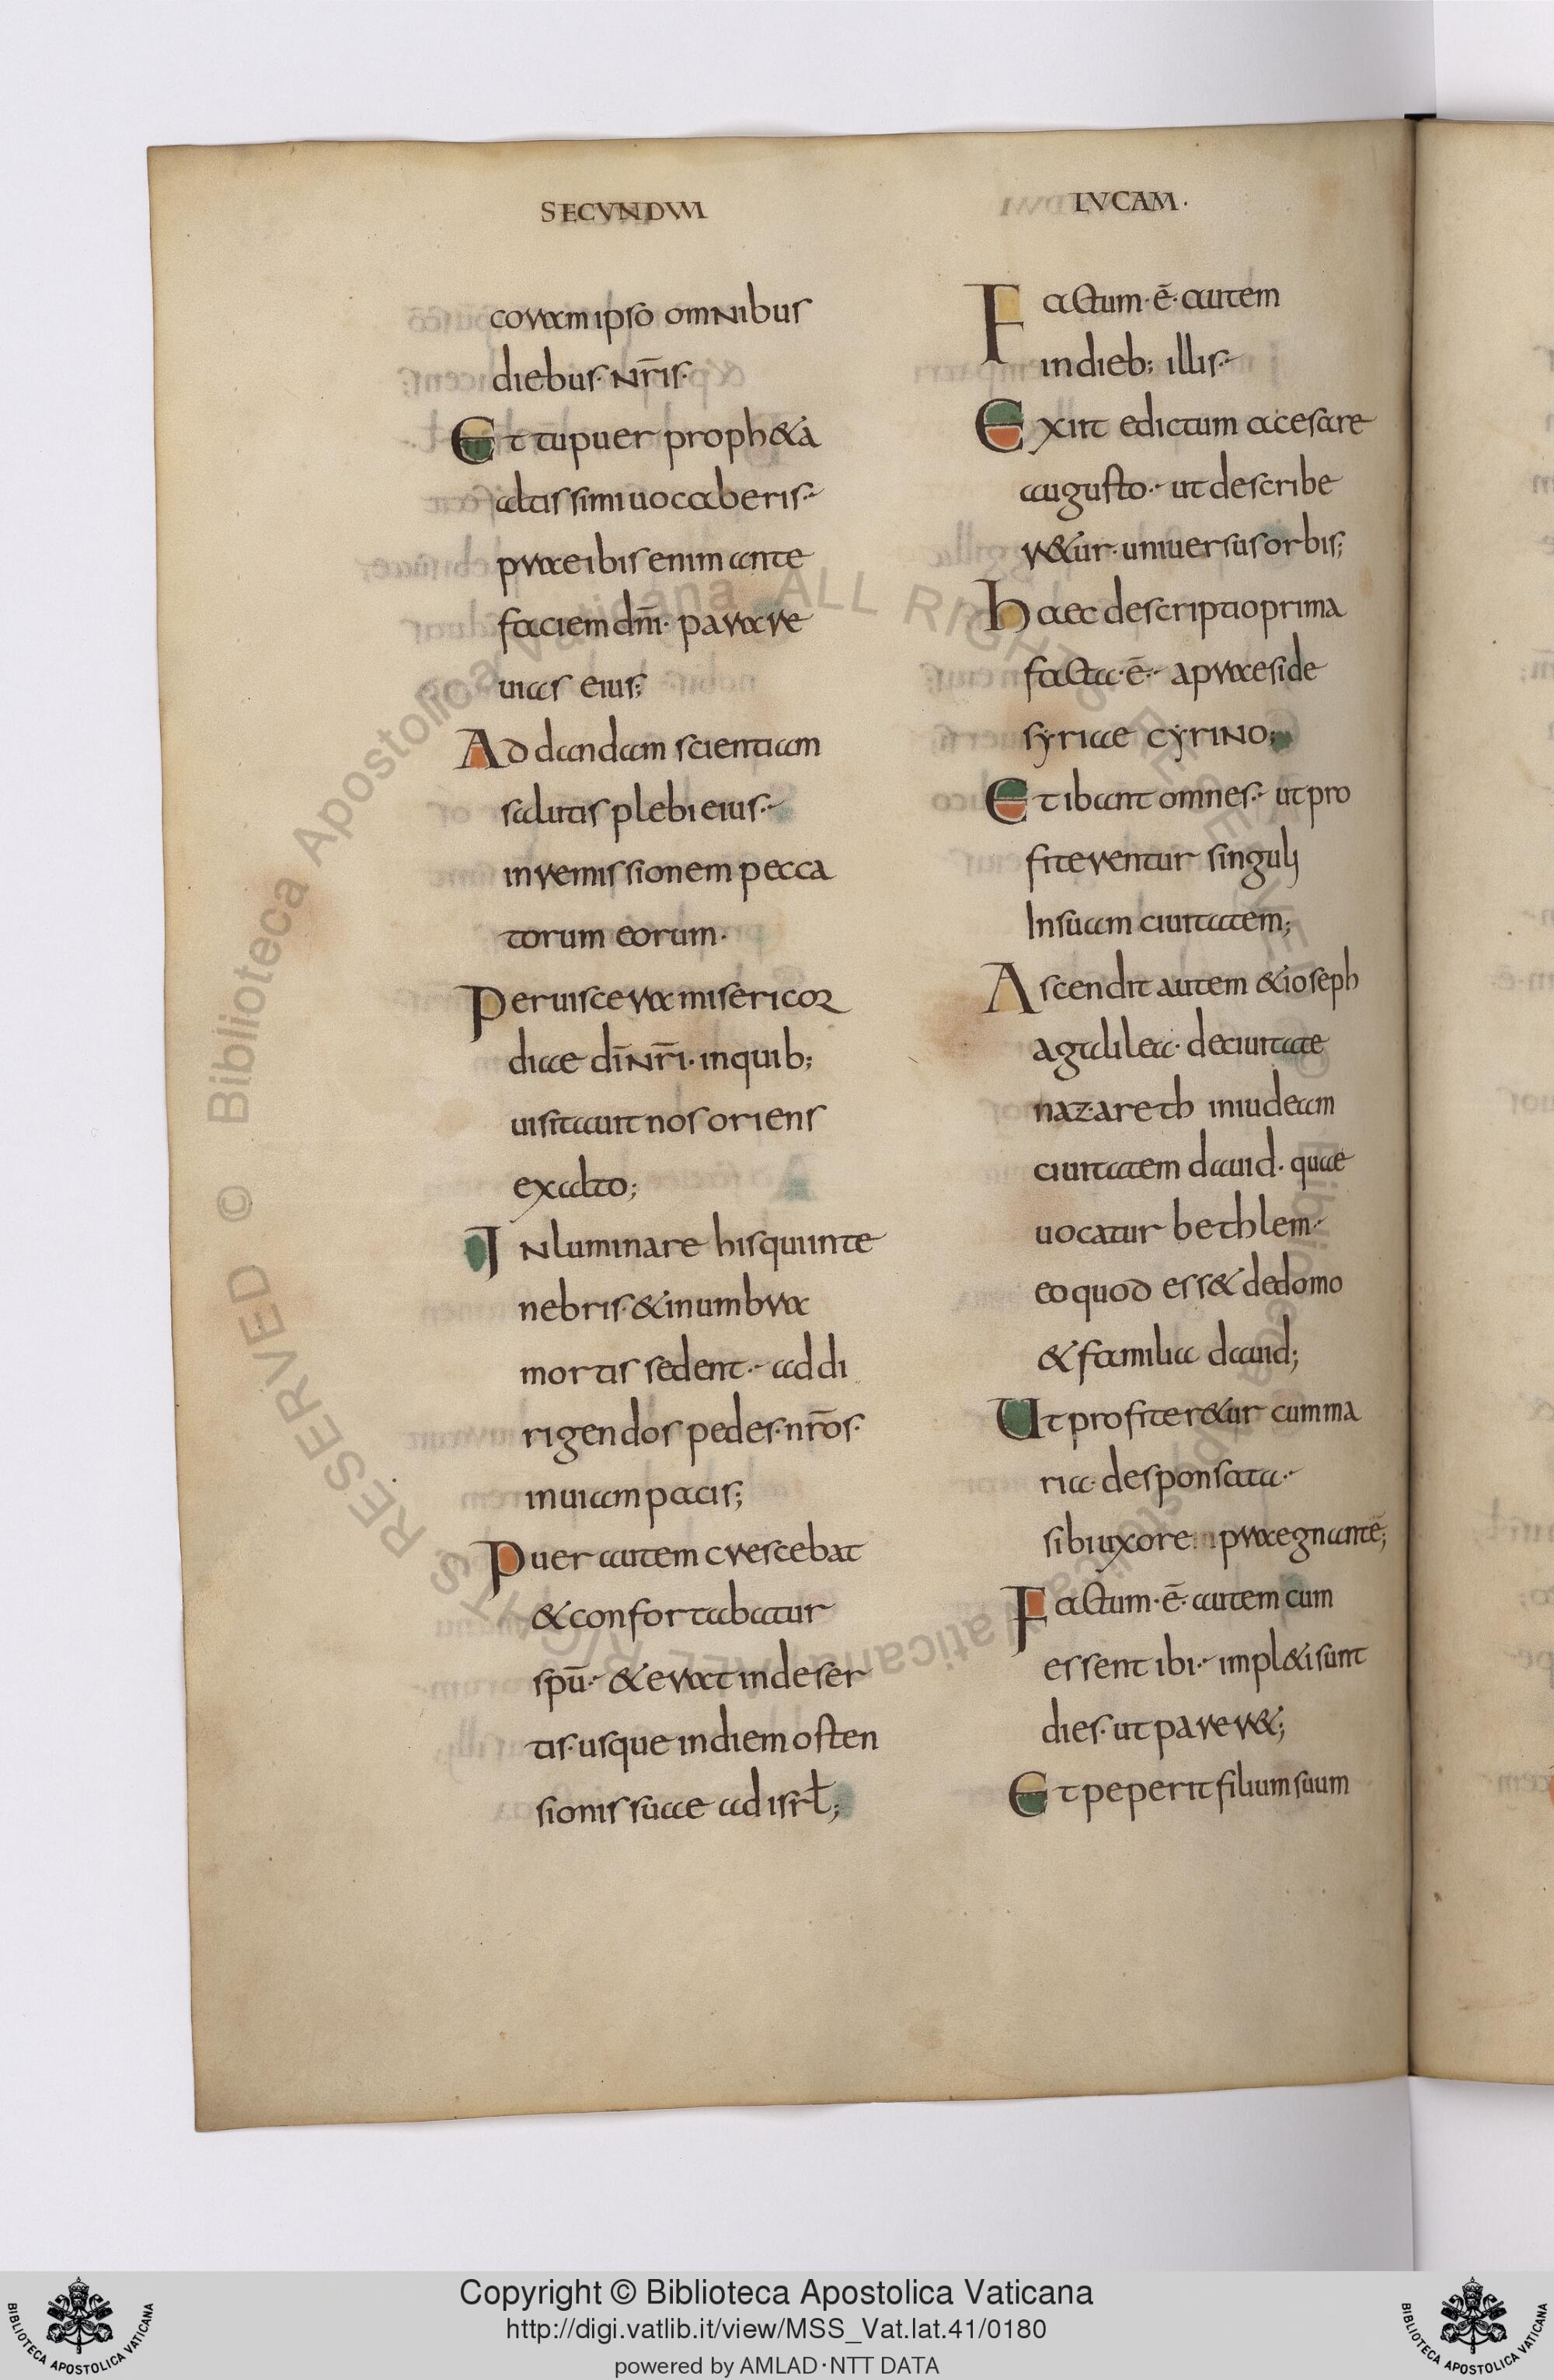 SECVNDVM
coram ipso omnibus
diebus· nr̄is·
Et tu puer proph&a
altissimi uocaberis·
praeibis enim ante
faciem dn̄i· parare
uias eius;
Ad dandam scientiam
salutis plebi eius·
in remissionem pecca
torum eorum·
Per uiscera misericor
diae dī nr̄i· in quib;
uisitauit nos oriens
ex alto;
Inluminare his qui in te
nebris· & in umbra
mortis sedent· ad di
rigendos pedes· nr̄os·
in uiam pacis;
Puer autem crescebat
& confortabatur
spū· & erat in deser
tis· usque in diem osten
sionis suae ad isrł;
LVCAM·
Factum· ē· autem
in dieb; illis·
Exiit edictum a cesare
augusto· ut describe
r&ur· uniuersus orbis;
Haec descriptio prima
facta· ē· a praeside
syriae cyrino;
Et ibant omnes· ut pro
fiterentur singuli
In suam ciuitatem;
Ascendit autem & ioseph
a galilea· de ciuitate
nazareth in iudeam
ciuitatem dauid· quae
uocatur bethlem·
eo quod ess& de domo
& familia dauid;
Ut profiter&ur cum ma
ria· desponsata·
sibi uxorem praegnantē;
Factum· ē· autem cum
essent ibi· impl&i sunt
dies· ut parer&;
Et peperit filium suum
Copyright © Biblioteca Apostolica Vaticana
http://digi.vatlib.it/view/MSS_Vat.lat.41/0180
powered by AMLAD·NTT DATA
BIBLIOTECA APOSTOLICA VATICANA
BIBLIOTECA APOSTOLICA VATICANA
© Biblioteca Apostolica Vaticana ALL RIGHTS RESERVED © Biblioteca Apostolica Vaticana ALL RIGHTS RESERVED